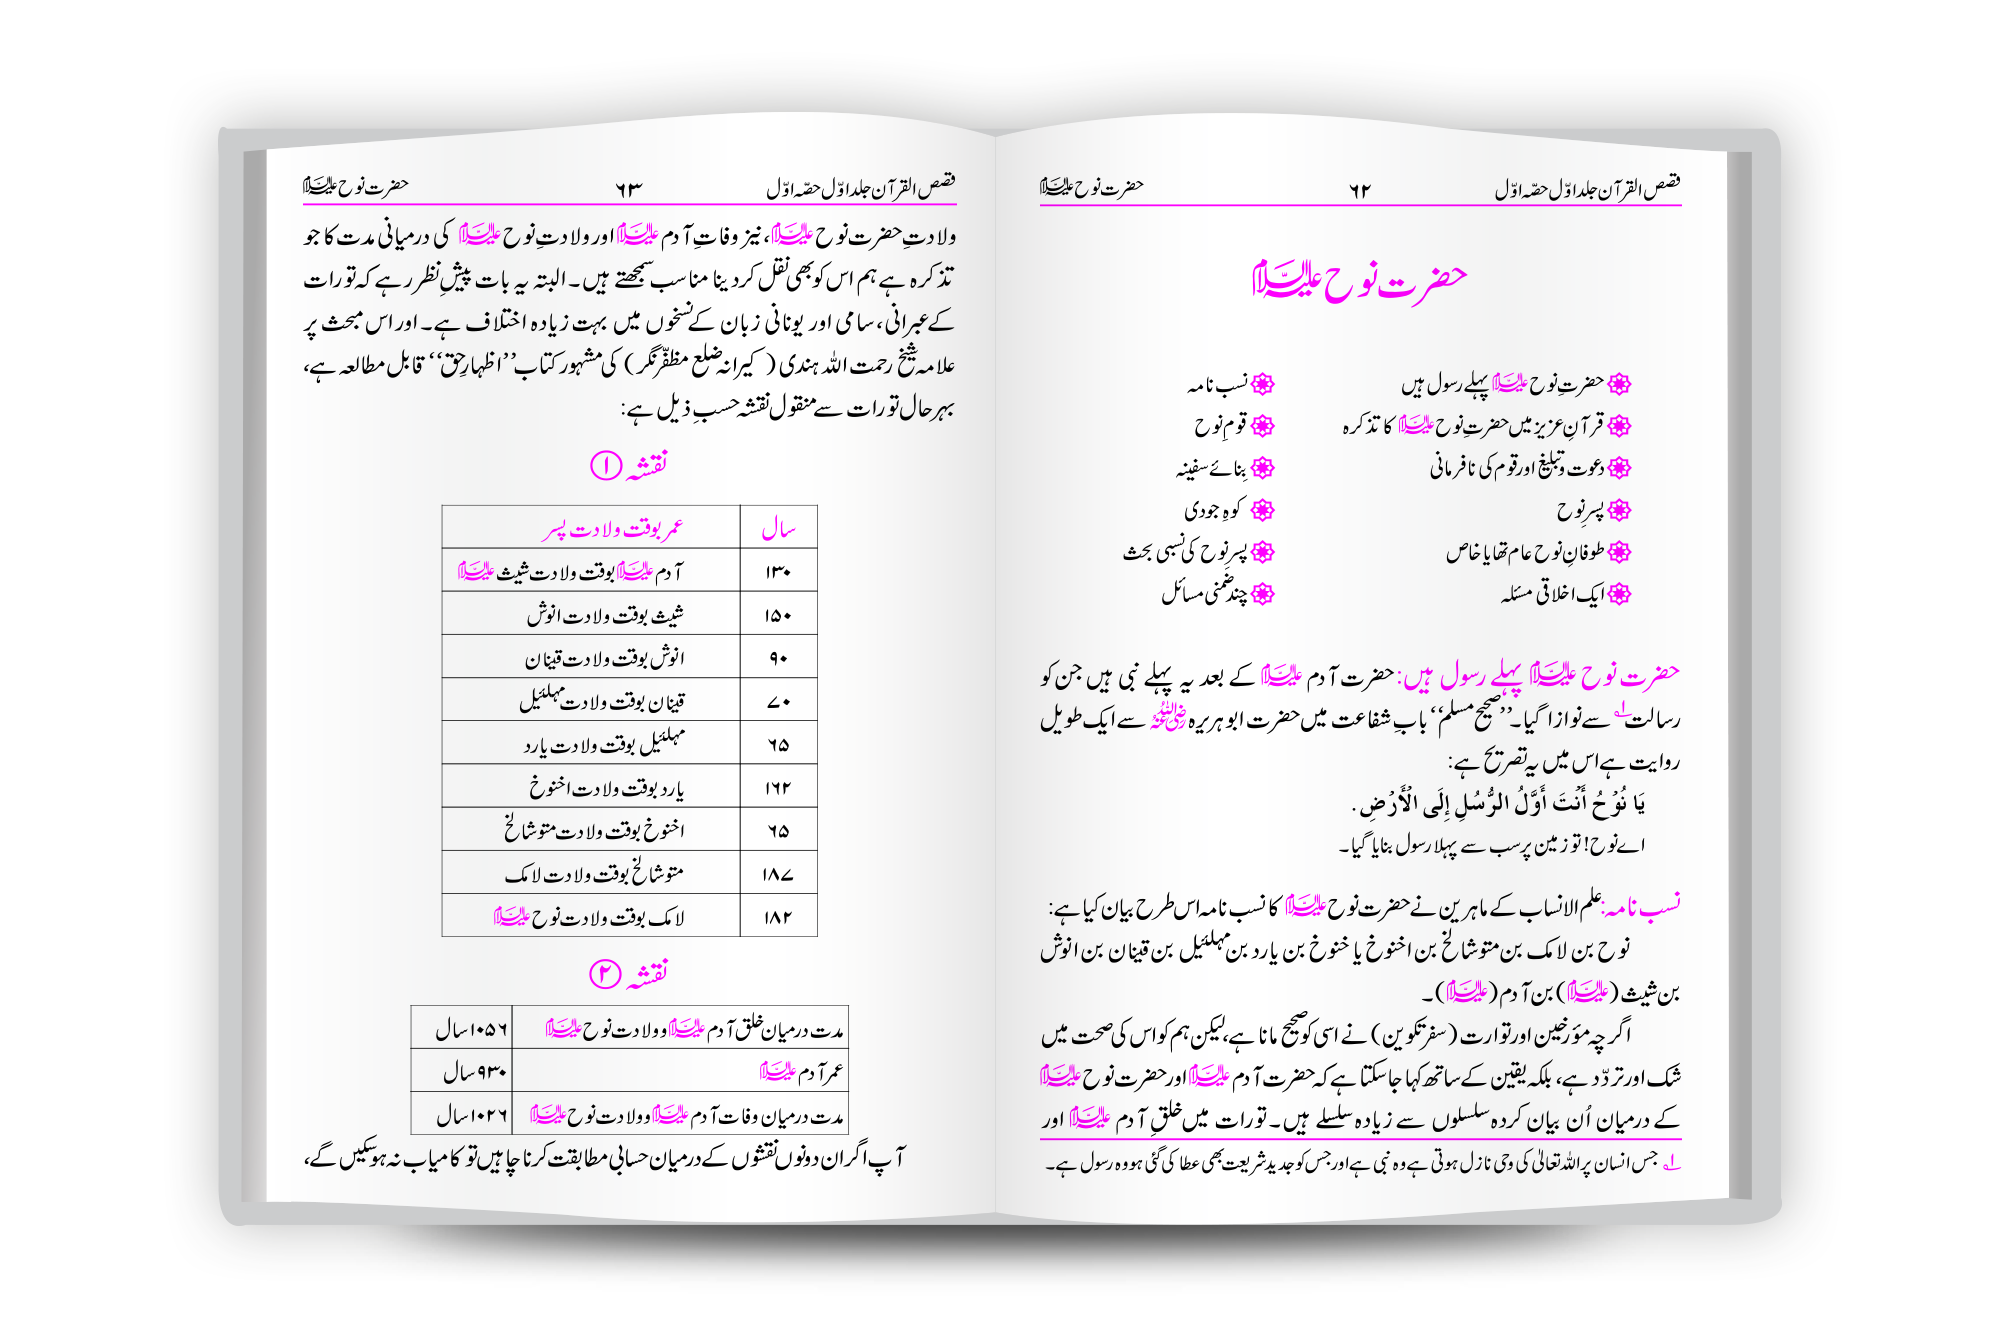 قصص القرآن جلد اوّل حصّہ اوّل ۶۲ حضرت نوح علیہ السلام
حضرت نوح علیہ السلام
حضرتِ نوح علیہ السلام پہلے رسول ہیں نسب نامہ
قرآنِ عزیز میں حضرتِ نوح علیہ السلام کا تذکرہ قومِ نوح
دعوت و تبلیغ اور قوم کی نافرمانی بِنائے سفینہ
پسرِ نوح کوہِ جودی
طوفانِ نوح عام تھا یا خاص پسرِ نوح کی نسبی بحث
ایک اخلاقی مسئلہ چند ضمنی مسائل
حضرت نوح علیہ السلام پہلے رسول ہیں: حضرت آدم علیہ السلام کے بعد یہ پہلے نبی ہیں جن کو
رسالت ۱؎ سے نوازا گیا۔ ’’صحیح مسلم‘‘ بابِ شفاعت میں حضرت ابو ہریرہ رضی اللہ عنہ سے ایک طویل
روایت ہے اس میں یہ تصریح ہے:
يَا نُوْحُ أَنْتَ أَوَّلُ الرُّسُلِ إِلَى الْأَرْضِ.
اے نوح! تو زمین پر سب سے پہلا رسول بنایا گیا۔
نسب نامہ: علم الانساب کے ماہرین نے حضرت نوح علیہ السلام کا نسب نامہ اس طرح بیان کیا ہے:
نوح بن لامک بن متوشالخ بن اخنوخ یا خنوخ بن یارد بن مہلئیل بن قینان بن انوش
بن شیث (علیہ السلام) بن آدم (علیہ السلام)۔
اگرچہ مؤرخین اور توارت (سفر تکوین) نے اسی کو صحیح مانا ہے، لیکن ہم کو اس کی صحت میں
شک اور تردّد ہے، بلکہ یقین کے ساتھ کہا جاسکتا ہے کہ حضرت آدم علیہ السلام اور حضرت نوح علیہ السلام
کے درمیان اُن بیان کردہ سلسلوں سے زیادہ سلسلے ہیں۔ تورات میں خلقِ آدم علیہ السلام اور
۱؎ جس انسان پر اللہ تعالیٰ کی وحی نازل ہوتی ہے وہ نبی ہے اور جس کو جدید شریعت بھی عطا کی گئی ہو وہ رسول ہے۔
قصص القرآن جلد اوّل حصّہ اوّل ۶۳ حضرت نوح علیہ السلام
ولادتِ حضرت نوح علیہ السلام، نیز وفاتِ آدم علیہ السلام اور ولادتِ نوح علیہ السلام کی درمیانی مدت کا جو
تذکرہ ہے ہم اس کو بھی نقل کر دینا مناسب سمجھتے ہیں۔ البتہ یہ بات پیشِ نظر رہے کہ تورات
کے عبرانی، سامی اور یونانی زبان کے نسخوں میں بہت زیادہ اختلاف ہے۔ اور اس مبحث پر
علامہ شیخ رحمت اللہ ہندی (کیرانہ ضلع مظفّر نگر) کی مشہور کتاب ’’اظہارِ حق‘‘ قابل مطالعہ ہے،
بہرحال تورات سے منقول نقشہ حسبِ ذیل ہے:
نقشہ ①
سال عمر بوقت ولادت پسر
۱۳۰ آدم علیہ السلام بوقت ولادت شیث علیہ السلام
۱۵۰ شیث بوقت ولادت انوش
۹۰ انوش بوقت ولادت قینان
۷۰ قینان بوقت ولادت مہلئیل
۶۵ مہلئیل بوقت ولادت یارد
۱۶۲ یارد بوقت ولادت اخنوخ
۶۵ اخنوخ بوقت ولادت متوشالخ
۱۸۷ متوشالخ بوقت ولادت لامک
۱۸۲ لامک بوقت ولادت نوح علیہ السلام
نقشہ ②
مدت درمیان خلق آدم علیہ السلام و ولادت نوح علیہ السلام ۱۰۵۶ سال
عمر آدم علیہ السلام ۹۳۰ سال
مدت درمیان وفات آدم علیہ السلام و ولادت نوح علیہ السلام ۱۰۲۶ سال
آپ اگر ان دونوں نقشوں کے درمیان حسابی مطابقت کرنا چاہیں تو کامیاب نہ ہوسکیں گے،